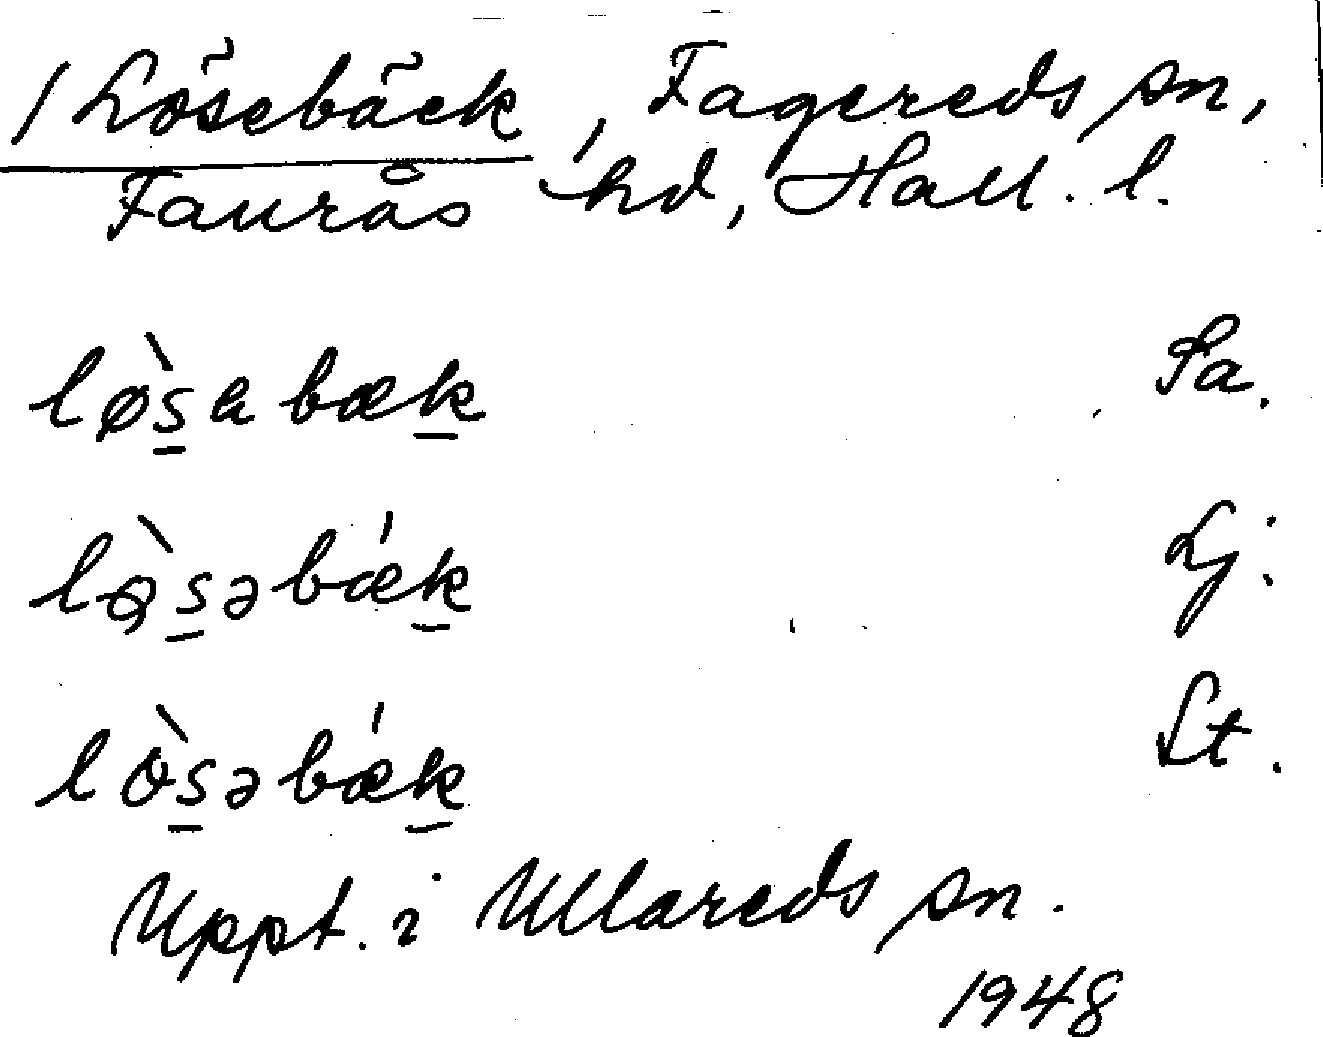 / Lösebäck, Fagereds sn,
Faurås hd, Hall. l.
lø̀s̲abæk̲ Sa.
lǫ̀s̲əbǽk̲ Lj.
lòs̲əbǽk̲ St.
Uppt. i Ullareds sn.
1948